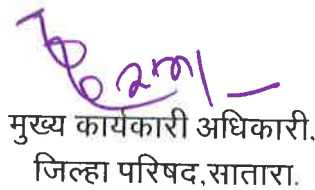 मुख्य कार्यकारी अधिकारी.
जिल्हा परिषद,सातारा.